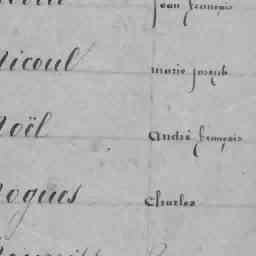 jean françois
Nicoul marie joseph
Noël André françois
Nogues Charles